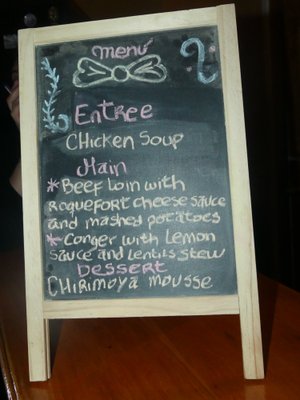 menu
Entree
Chicken Soup
Main
* Beef Loin with
Roquefort cheese sauce
and mashed potatoes
* Conger with Lemon
sauce and Lentils stew
Dessert
Chirimoya mousse